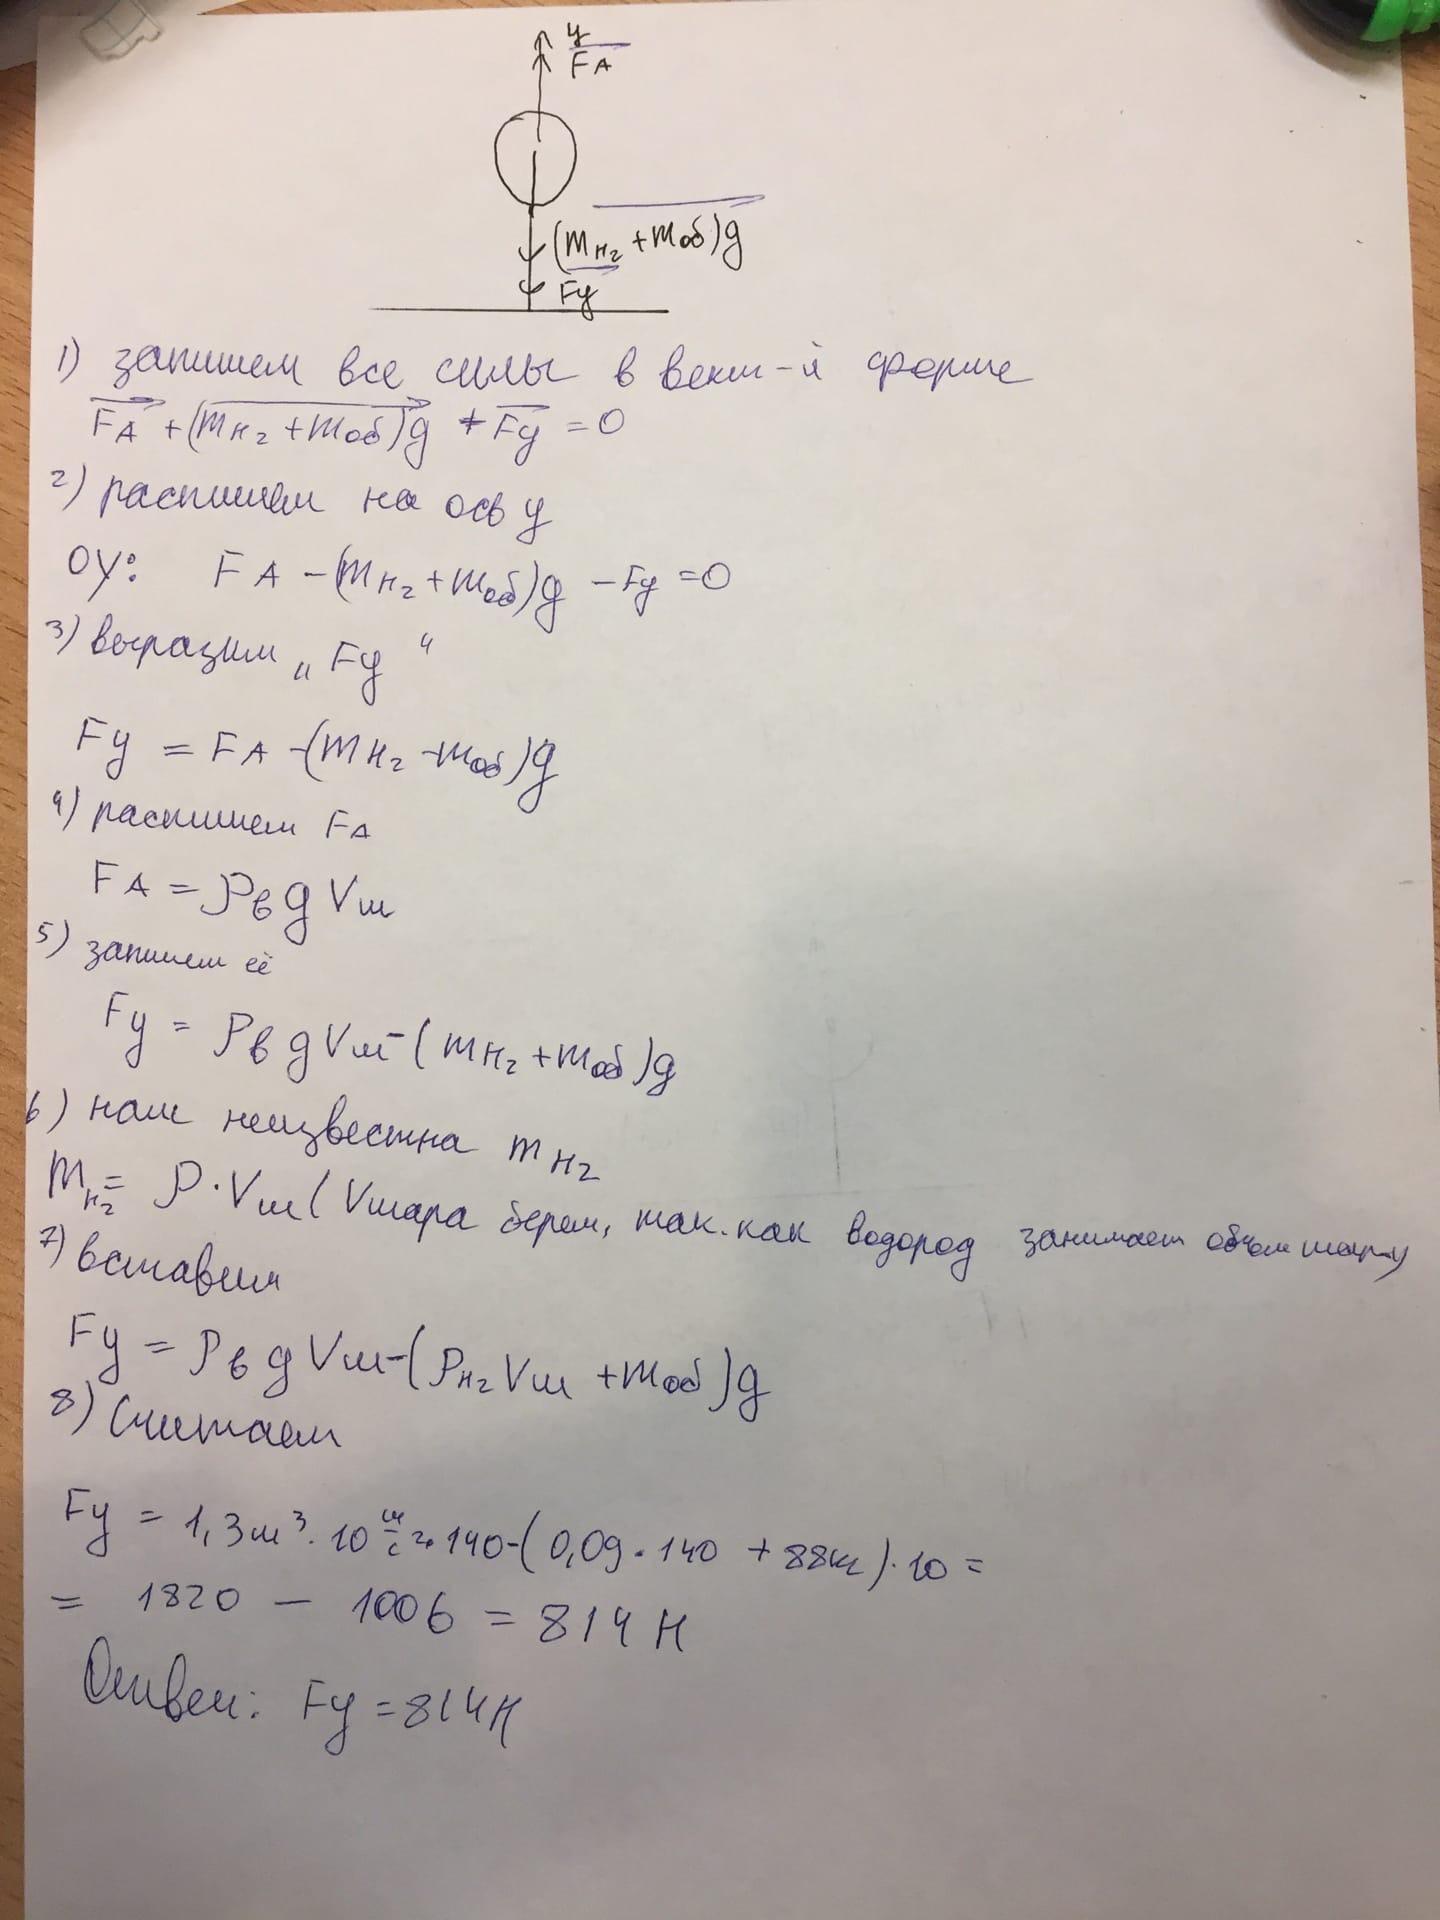 y
FA
(mн₂ + mоб)g
Fy
1) запишем все силы в вект-й форме
FA + (mн₂ + mоб)g + Fy = 0
2) распишем на ось y
OY: FA – (mн₂ + mоб)g – Fy = 0
3) выразим „Fy“
Fy = FA – (mн₂ – mоб)g
4) распишем FA
FA = ρв g Vш
5) запишем её
Fy = ρв g Vш – (mн₂ + mоб)g
6) нам неизвестна mн₂
mн₂ = ρ · Vш ( Vшара берем, так.как водород занимает объем шара)
7) вставим
Fy = ρв g Vш – (ρн₂ Vш + mоб)g
8) Считаем
Fy = 1,3 м³ · 10 м/с² · 140 – (0,09 · 140 + 88кг) · 10 =
= 1820 – 1006 = 814 Н
Ответ: Fy = 814 Н